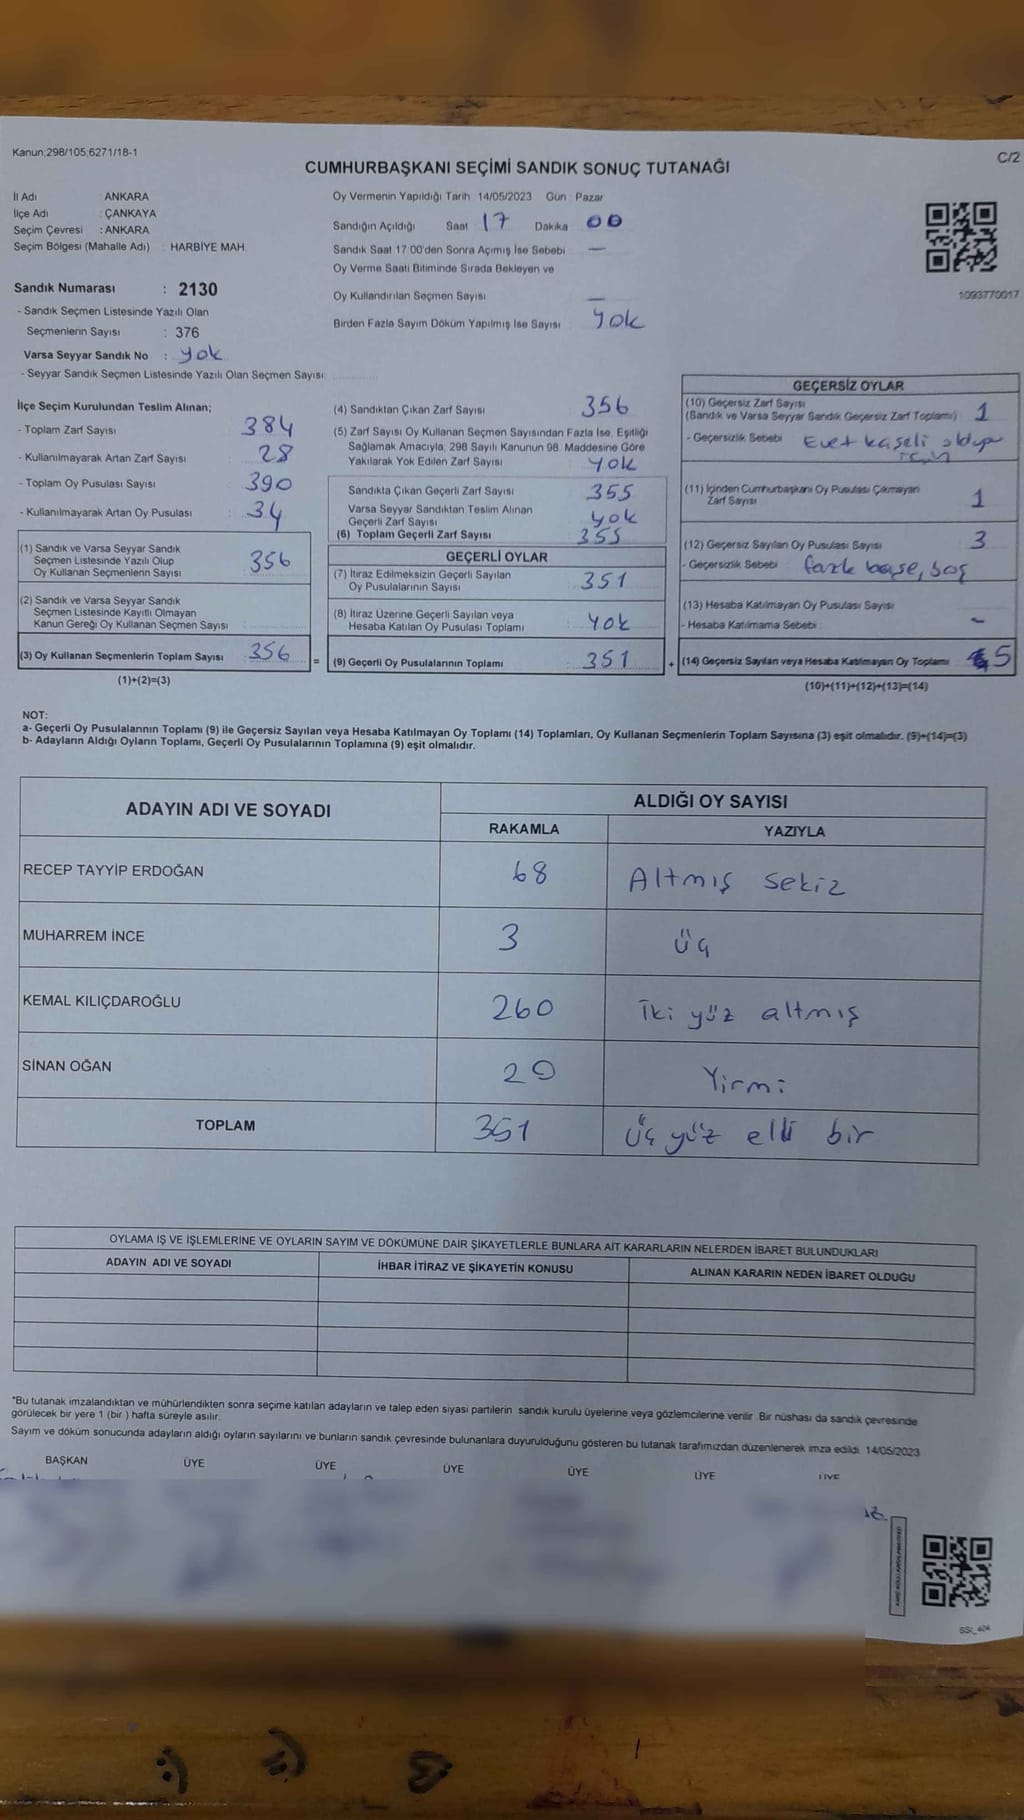 Kanun;298/105;6271/18-1
C/2
CUMHURBAŞKANI SEÇİMİ SANDIK SONUÇ TUTANAĞI
İl Adı : ANKARA
İlçe Adı : ÇANKAYA
Seçim Çevresi : ANKARA
Seçim Bölgesi (Mahalle Adı) : HARBİYE MAH.
Sandık Numarası : 2130
- Sandık Seçmen Listesinde Yazılı Olan
Seçmenlerin Sayısı : 376
Varsa Seyyar Sandık No : yok
- Seyyar Sandık Seçmen Listesinde Yazılı Olan Seçmen Sayısı:
Oy Vermenin Yapıldığı Tarih : 14/05/2023 Gün : Pazar
Sandığın Açıldığı Saat 17 Dakika 00
Sandık Saat 17:00'den Sonra Açımış İse Sebebi —
Oy Verme Saati Bitiminde Sırada Bekleyen ve
Oy Kullandırılan Seçmen Sayısı —
Birden Fazla Sayım Döküm Yapılmış İse Sayısı : yok
1093770017
İlçe Seçim Kurulundan Teslim Alınan;
- Toplam Zarf Sayısı : 384
- Kullanılmayarak Artan Zarf Sayısı : 28
- Toplam Oy Pusulası Sayısı : 390
- Kullanılmayarak Artan Oy Pusulası : 34
(1) Sandık ve Varsa Seyyar Sandık
Seçmen Listesinde Yazılı Olup
Oy Kullanan Seçmenlerin Sayısı : 356
(2) Sandık ve Varsa Seyyar Sandık
Seçmen Listesinde Kayıtlı Olmayan
Kanun Gereği Oy Kullanan Seçmen Sayısı :
(3) Oy Kullanan Seçmenlerin Toplam Sayısı : 356
(1)+(2)=(3)
(4) Sandıktan Çıkan Zarf Sayısı : 356
(5) Zarf Sayısı Oy Kullanan Seçmen Sayısından Fazla İse, Eşitliği
Sağlamak Amacıyla; 298 Sayılı Kanunun 98. Maddesine Göre
Yakılarak Yok Edilen Zarf Sayısı : yok
Sandıkta Çıkan Geçerli Zarf Sayısı : 355
Varsa Seyyar Sandıktan Teslim Alınan
Geçerli Zarf Sayısı : yok
(6) Toplam Geçerli Zarf Sayısı : 355
GEÇERLİ OYLAR
(7) İtiraz Edilmeksizin Geçerli Sayılan
Oy Pusulalarının Sayısı : 351
(8) İtiraz Üzerine Geçerli Sayılan veya
Hesaba Katılan Oy Pusulası Toplamı : yok
= (9) Geçerli Oy Pusulalarının Toplamı : 351
GEÇERSİZ OYLAR
(10) Geçersiz Zarf Sayısı
(Sandık ve Varsa Seyyar Sandık Geçersiz Zarf Toplamı) : 1
- Geçersizlik Sebebi : Evet kaşeli
(11) İçinden Cumhurbaşkanı Oy Pusulası Çıkmayan
Zarf Sayısı : 1
(12) Geçersiz Sayılan Oy Pusulası Sayısı : 3
- Geçersizlik Sebebi : fazla kaşe, boş
(13) Hesaba Katılmayan Oy Pusulası Sayısı
- Hesaba Katılmama Sebebi : -
+ (14) Geçersiz Sayılan veya Hesaba Katılmayan Oy Toplamı : 5
(10)+(11)+(12)+(13)=(14)
NOT:
a- Geçerli Oy Pusulalarının Toplamı (9) ile Geçersiz Sayılan veya Hesaba Katılmayan Oy Toplamı (14) Toplamları, Oy Kullanan Seçmenlerin Toplam Sayısına (3) eşit olmalıdır. (9)+(14)=(3)
b- Adayların Aldığı Oyların Toplamı, Geçerli Oy Pusulalarının Toplamına (9) eşit olmalıdır.
ADAYIN ADI VE SOYADI
ALDIĞI OY SAYISI
RAKAMLA YAZIYLA
RECEP TAYYİP ERDOĞAN 68 Altmış sekiz
MUHARREM İNCE 3 üç
KEMAL KILIÇDAROĞLU 260 iki yüz altmış
SİNAN OĞAN 20 Yirmi
TOPLAM 351 üç yüz elli bir
OYLAMA İŞ VE İŞLEMLERİNE VE OYLARIN SAYIM VE DÖKÜMÜNE DAİR ŞİKAYETLERLE BUNLARA AİT KARARLARIN NELERDEN İBARET BULUNDUKLARI
ADAYIN ADI VE SOYADI İHBAR İTİRAZ VE ŞİKAYETİN KONUSU ALINAN KARARIN NEDEN İBARET OLDUĞU
*Bu tutanak imzalandıktan ve mühürlendikten sonra seçime katılan adayların ve talep eden siyasi partilerin sandık kurulu üyelerine veya gözlemcilerine verilir. Bir nüshası da sandık çevresinde
görülecek bir yere 1 (bir ) hafta süreyle asılır.
Sayım ve döküm sonucunda adayların aldığı oyların sayılarını ve bunların sandık çevresinde bulunanlara duyurulduğunu gösteren bu tutanak tarafımızdan düzenlenerek imza edildi. 14/05/2023
BAŞKAN ÜYE ÜYE ÜYE ÜYE ÜYE ÜYE